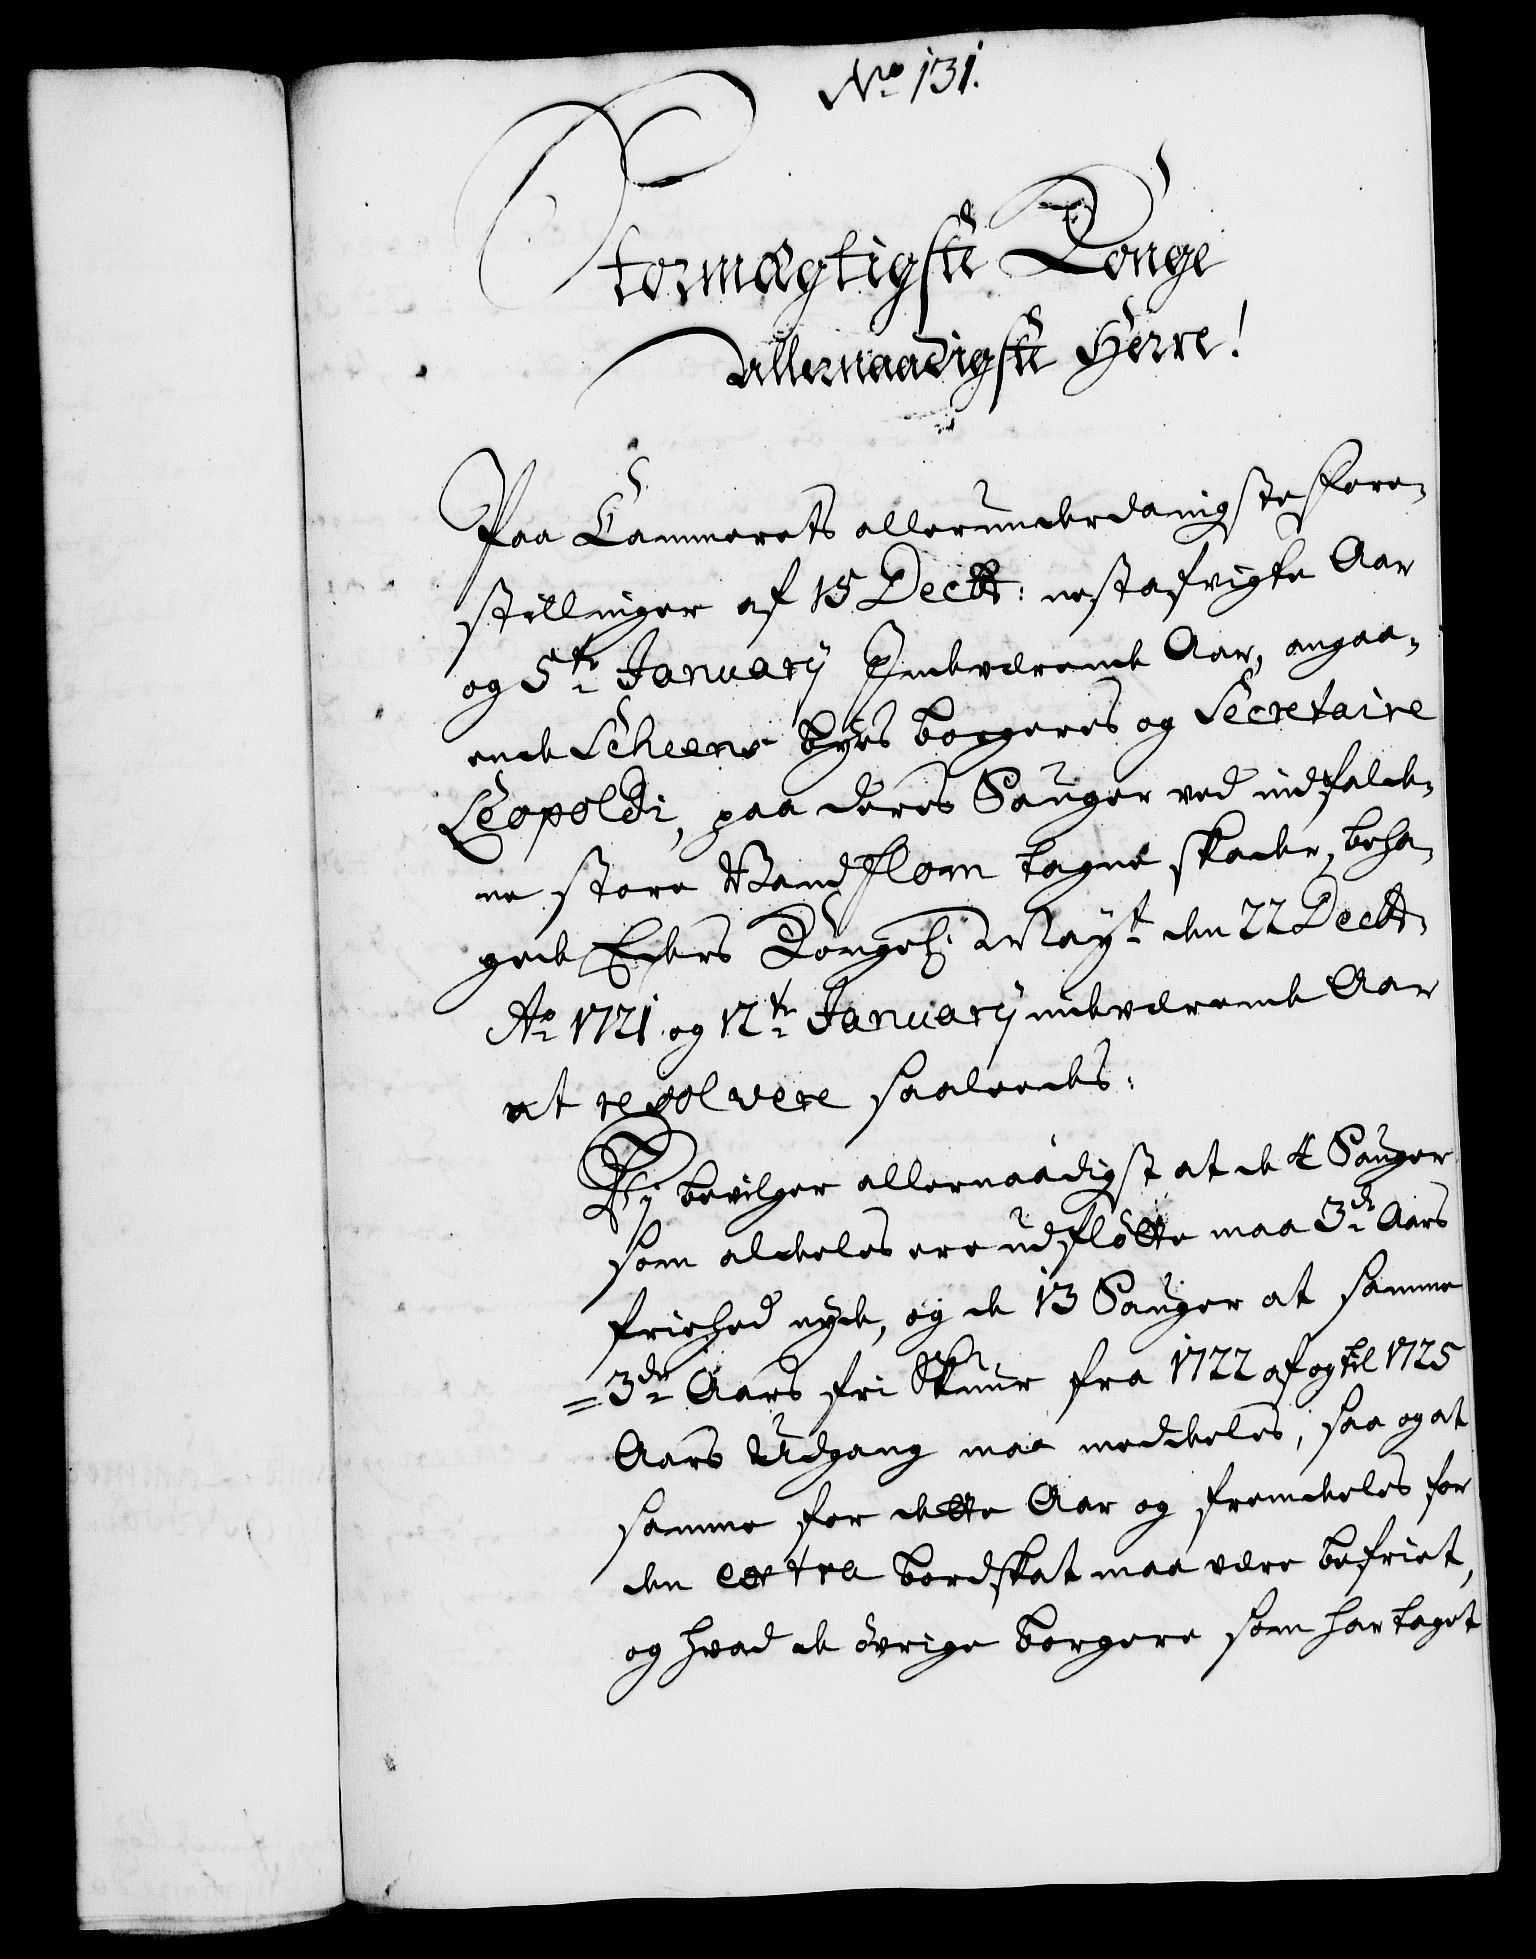 No 131.
Stormægtigste Konge
Allernaadigste Herre!
Paa Cammerets allerunderdanigste fore-
stillinger af 15 Decbr: nestafvigte Aar
og 5te January Indeværende Aar, angaa-
ende Scheens byes borgeres og Secretaire
Leopoldi, paa deres Sauger ved indfalde-
ne store Vandflom tagne skader, beha-
gede Eders Kongel. Mayt den 22 Decbr.
Ao 1721 og 12te January indeværende Aar
at resolvere saaledes:
Vj bevilger allernaadigst at de 4 Sauger
som aldeeles ere udfløtte maa 3de Aars
friehed nyde, og de 13 Sauger at samme
3de Aars fri Skuur fra 1722 af og til 1725
Aars Udgang maa meddeeles, saa og at
samme for dette Aar og fremdeeles for
den extra bordskat maa være befriet,
og hvad de øvrige borgere som har taget